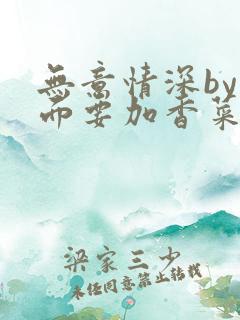 無意情深by
而要加香菜
梁家三少
未经同意禁止转载